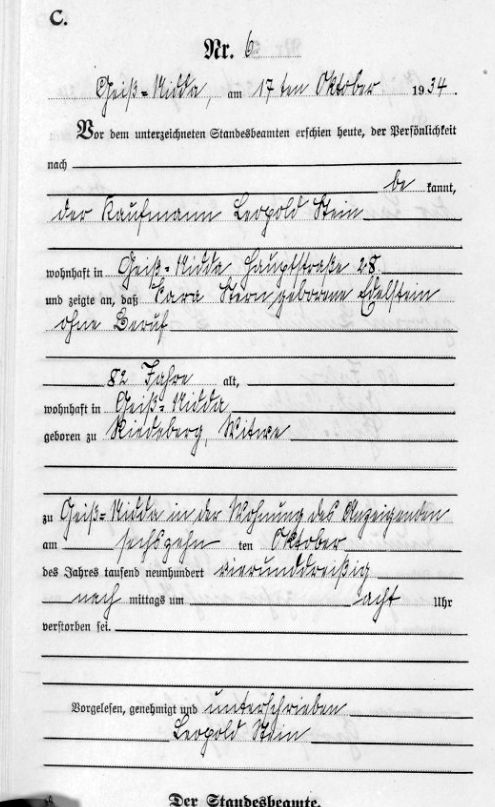 C.
Nr. 6
Geiß-Nidda, am 17 ten Oktober 1934.
Vor dem unterzeichneten Standesbeamten erschien heute, der Persönlichkeit
nach
be kannt,
der Kaufmann Leopold Stein
wohnhaft in Geiß-Nidda Hauptstraße 28
und zeigte an, daß Sara Stern geborene Edelstein
ohne Beruf
82 Jahre alt,
wohnhaft in Geiß-Nidda
geboren zu Witwe
zu Geiß-Nidda in der Wohnung des Anzeigenden
am sechszehn ten Oktober
des Jahres tausend neunhundert vierunddreißig
nach mittags um acht Uhr
verstorben sei.
Vorgelesen, genehmigt und unterschrieben
Leopold Stein
Der Standesbeamte.